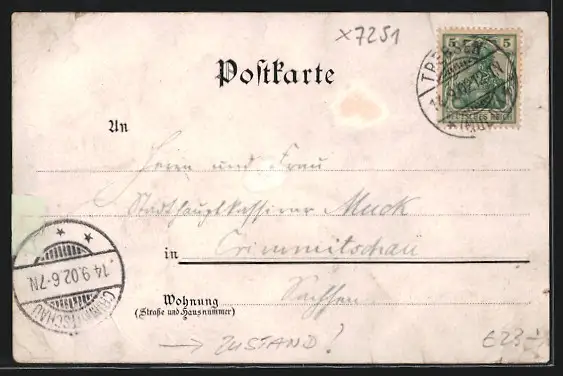 x7251
Postkarte
5 5
DEUTSCHES REICH
An
Herrn und Frau
Stadthauptkassirer Muck
in Crimmitschau
Sachsen
Wohnung
(Straße und Hausnummer)
14.9.02.6-7N.
CRIMMITSCHAU
→ ZUSTAND!
£23-